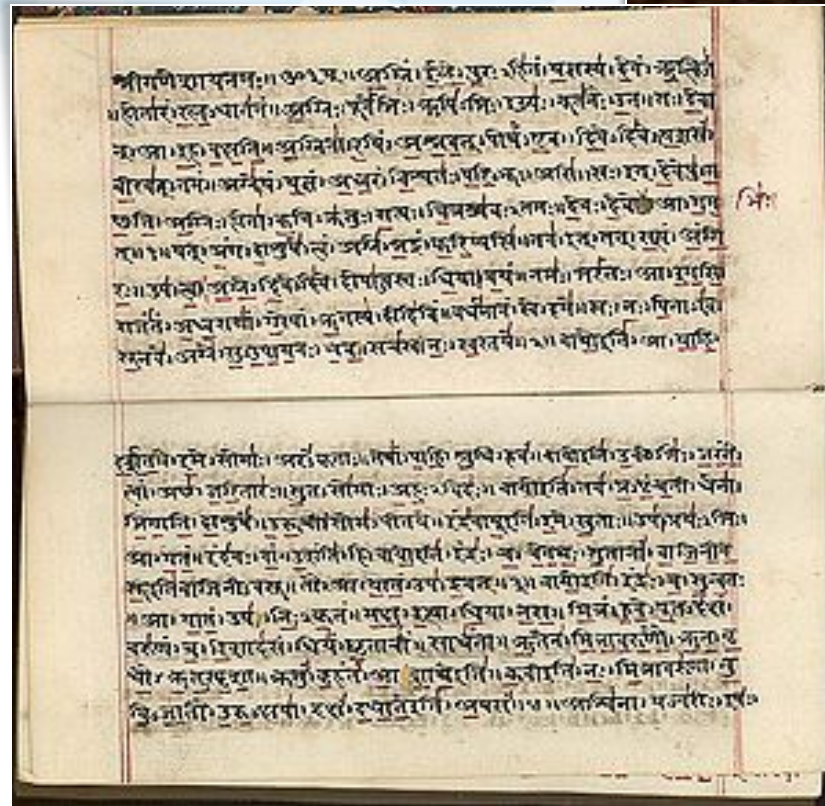 श्रीगणेशायनमः॥ॐ३म्॥अग्निं।ईळे।पुरःऽहितं।यज्ञस्य।देवं।ऋत्विजं
।होतारं।रत्नऽधातमं॥अग्निः।पूर्वेभिः।ऋषिभिः।ईड्यः।नूतनैः।उत॥सः।देवा
न्।आ।इह।वक्षति॥अग्निना।रयिं।अश्नवत्।पोषं।एव।दिवेऽदिवे॥यशसं
वीरवत्ऽतमं॥अग्ने।यं।यज्ञं।अध्वरं।विश्वतः।परिऽभूः।असि॥सः।इत्।देवेषु।ग
च्छति॥अग्निः।होता।कविऽक्रतुः।सत्यः।चित्रश्रवःऽतमः॥देवः।देवे।आ।गम
भिः
त्॥१॥यत्।अंग।दाशुषे।त्वं।अग्ने।भद्रं।करिष्यसि॥तव।इत्।तत्।सत्यं।अंगि
रः॥उप।त्वा।अग्ने।दिवेऽदिवे।दोषाऽवस्तः।धिया।वयं॥नमः।भरंतः।आ।इमसि॥
राजंतं।अध्वराणां।गोपां।ऋतस्य।दीदिविं॥वर्धमानं।स्वे।दमे॥सः।नः।पिताऽइव
सूनवे।अग्ने।सुऽउपायनः।भव॥सचस्व।नः।स्वस्तये॥२॥वायोइति।आ।याहि।
दर्शत।इमे।सोमाः।अरंऽकृताः॥तेषां।पाहि।श्रुधि।हवं॥वायोइति।उक्थेभिः।जरंते।
त्वां।अच्छ।जरितारः॥सुतऽसोमाः।अहःऽविदः॥वायोइति।तव।प्रऽपृंचती।धेना।
जिगाति।दाशुषे॥उरूची।सोमऽपीतये॥इंद्रवायूइति।इमे।सुताः॥उप।प्रयःऽभिः।
आ।गतं॥इंदवः।वां।उशंति।हि॥वायोइति।इंद्रः।च।चेतथः।सुतानां।वाजिनीव
सूइतिवाजिनीऽवसू॥तौ।आ।यातं।उप।द्रवत्॥३॥वायोइति।इंद्रः।च।सुन्वतः
॥आ।यातं।उप।निःऽकृतं॥मक्षु।इत्था।धिया।नरा॥मित्रं।हुवे।पूतऽदक्षं।
वरुणं।च।रिशादसं॥धियं।घृताचीं।साधंता॥ऋतेन।मित्रावरुणौ।ऋतऽवृ
धौ।ऋतऽस्पृशा॥क्रतुं।बृहंतं।आशाथेइति॥कवीइति।नः।मित्रावरुणा।तु
विऽजातौ।उरुऽक्षया॥दक्षं।दधातेइति।अपसं॥४॥अश्विना।यज्वरीः।इषः।